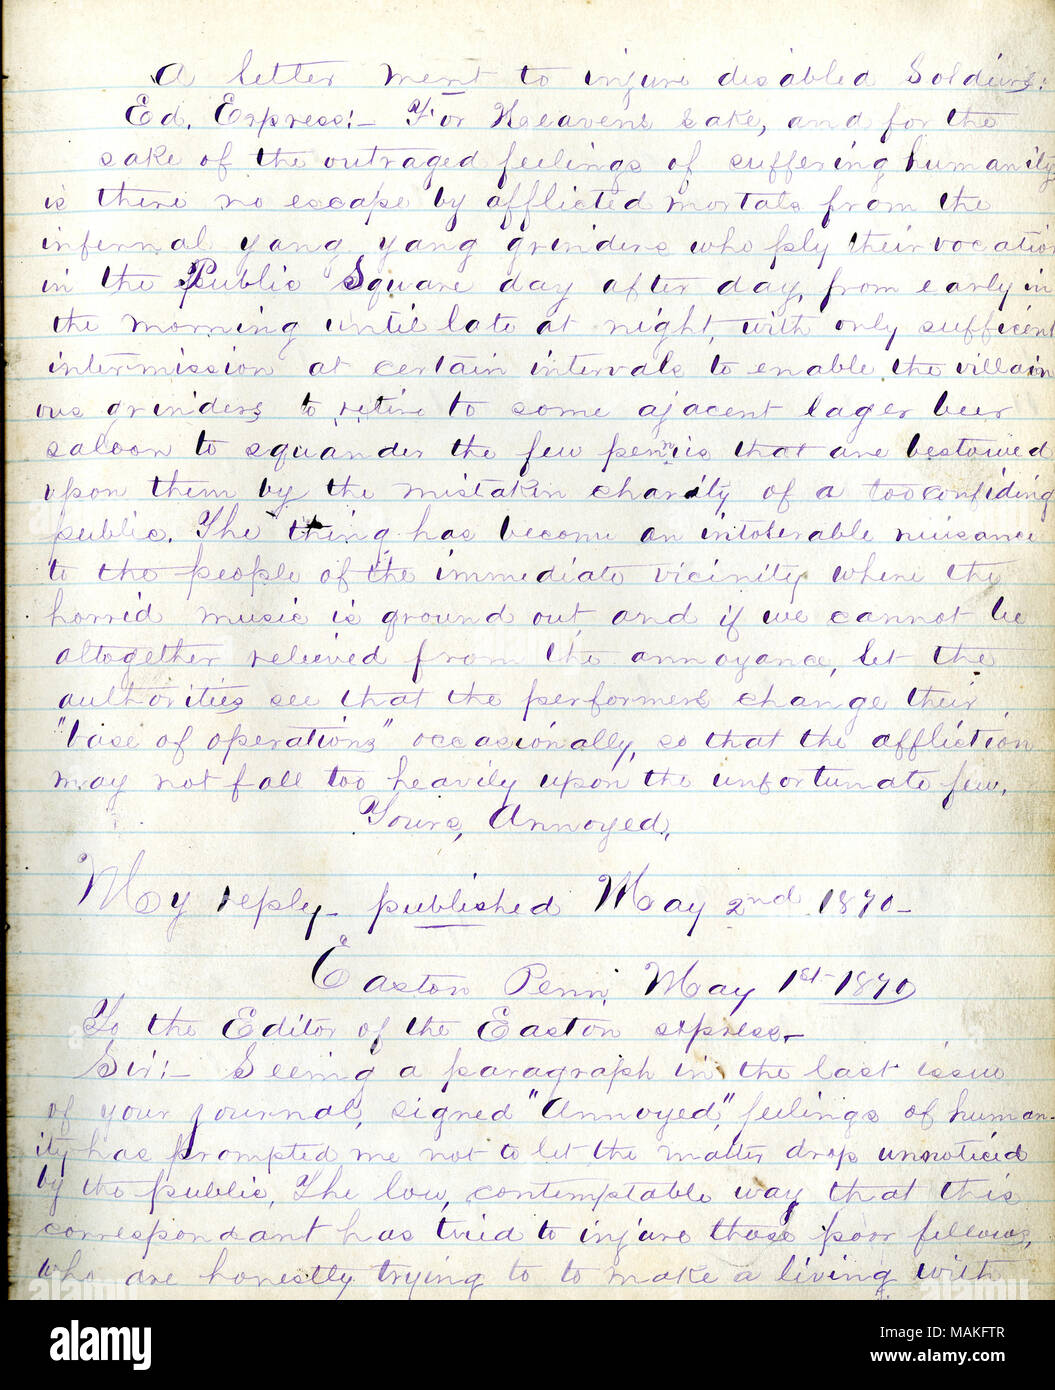 A letter ment to injure disabled Soldiers:
Ed. Express:- For Heavens sake, and for the
sake of the outraged feelings of suffering humanity
is there no escape by afflicted mortals from the
infernal yang yang grinders who ply their vocation
in the Public Square day after day, from early in
the morning until late at night, with only sufficent
intermission at certain intervals to enable the villain
ous grinders to retire to some ajacent lager beer
saloon to squander the few pennis that are bestowed
upon them by the mistaken charity of a too confiding
public. The thing has become an intolerable nuisance
to the people of the immediate vicinity where the
horrid music is ground out and if we cannot be
altogether relieved from the annoyance, let the
authorities see that the performers change their
"base of operations" occasionally, so that the affliction
may not fall too heavily upon the unfortunate few.
Yours, Annoyed.
My reply- published May 2nd 1870-
Easton Penn, May 1st-1870
To the Editor of the Easton express-
Sir:- Seeing a paragraph in the last issue
of your journal, signed "Annoyed," feelings of human-
ity has prompted me not to let the matter drop unnoticed
by the public. The low, contemptable way that this
correspondant has tried to injure those poor fellows,
who are honestly trying to to make a living with
alamy
Image ID: MAKFTR
www.alamy.com